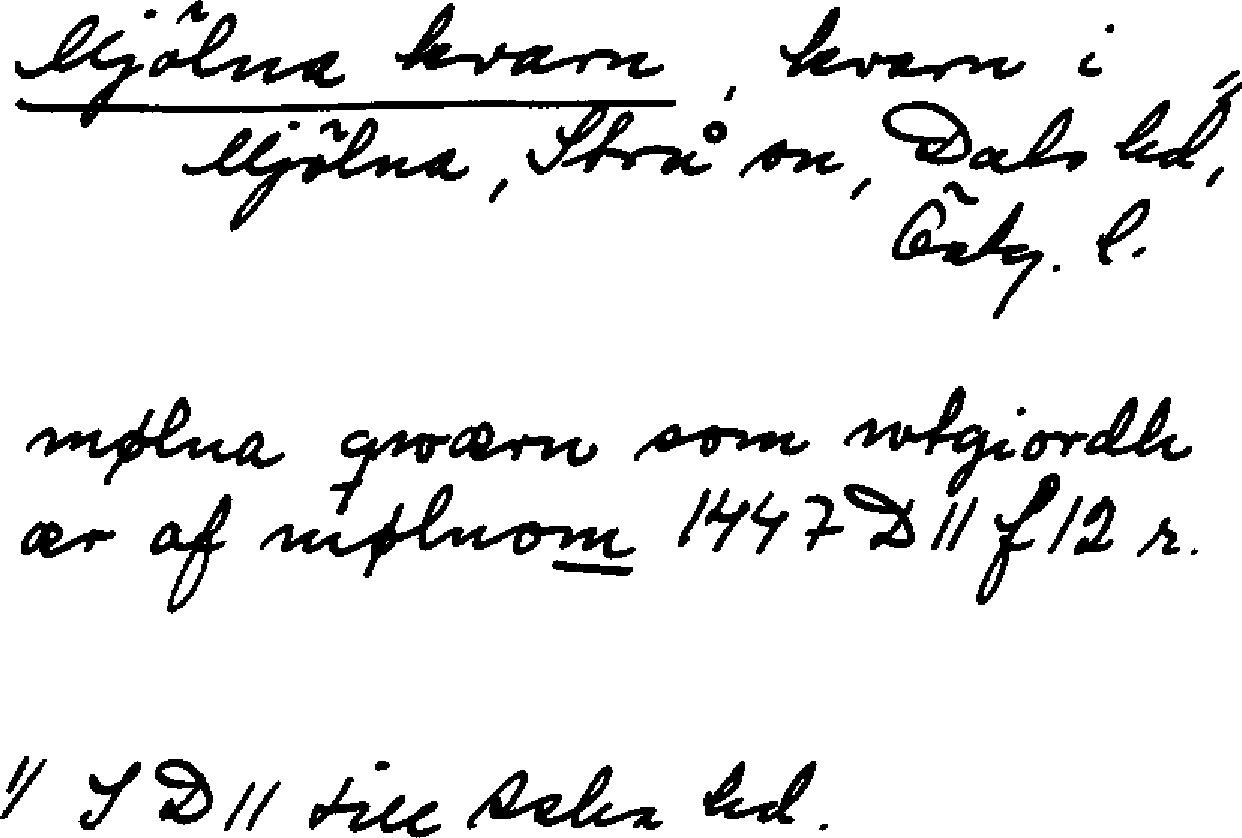 Mjölna kvarn, kvarn i
Mjölna, Strå sn, Dals hd, 1)
Östg. l.
mølna qwærn som wtgiordh
ær af mølnom 1447 D 11 f 12 r.
1) I D 11 till hd.